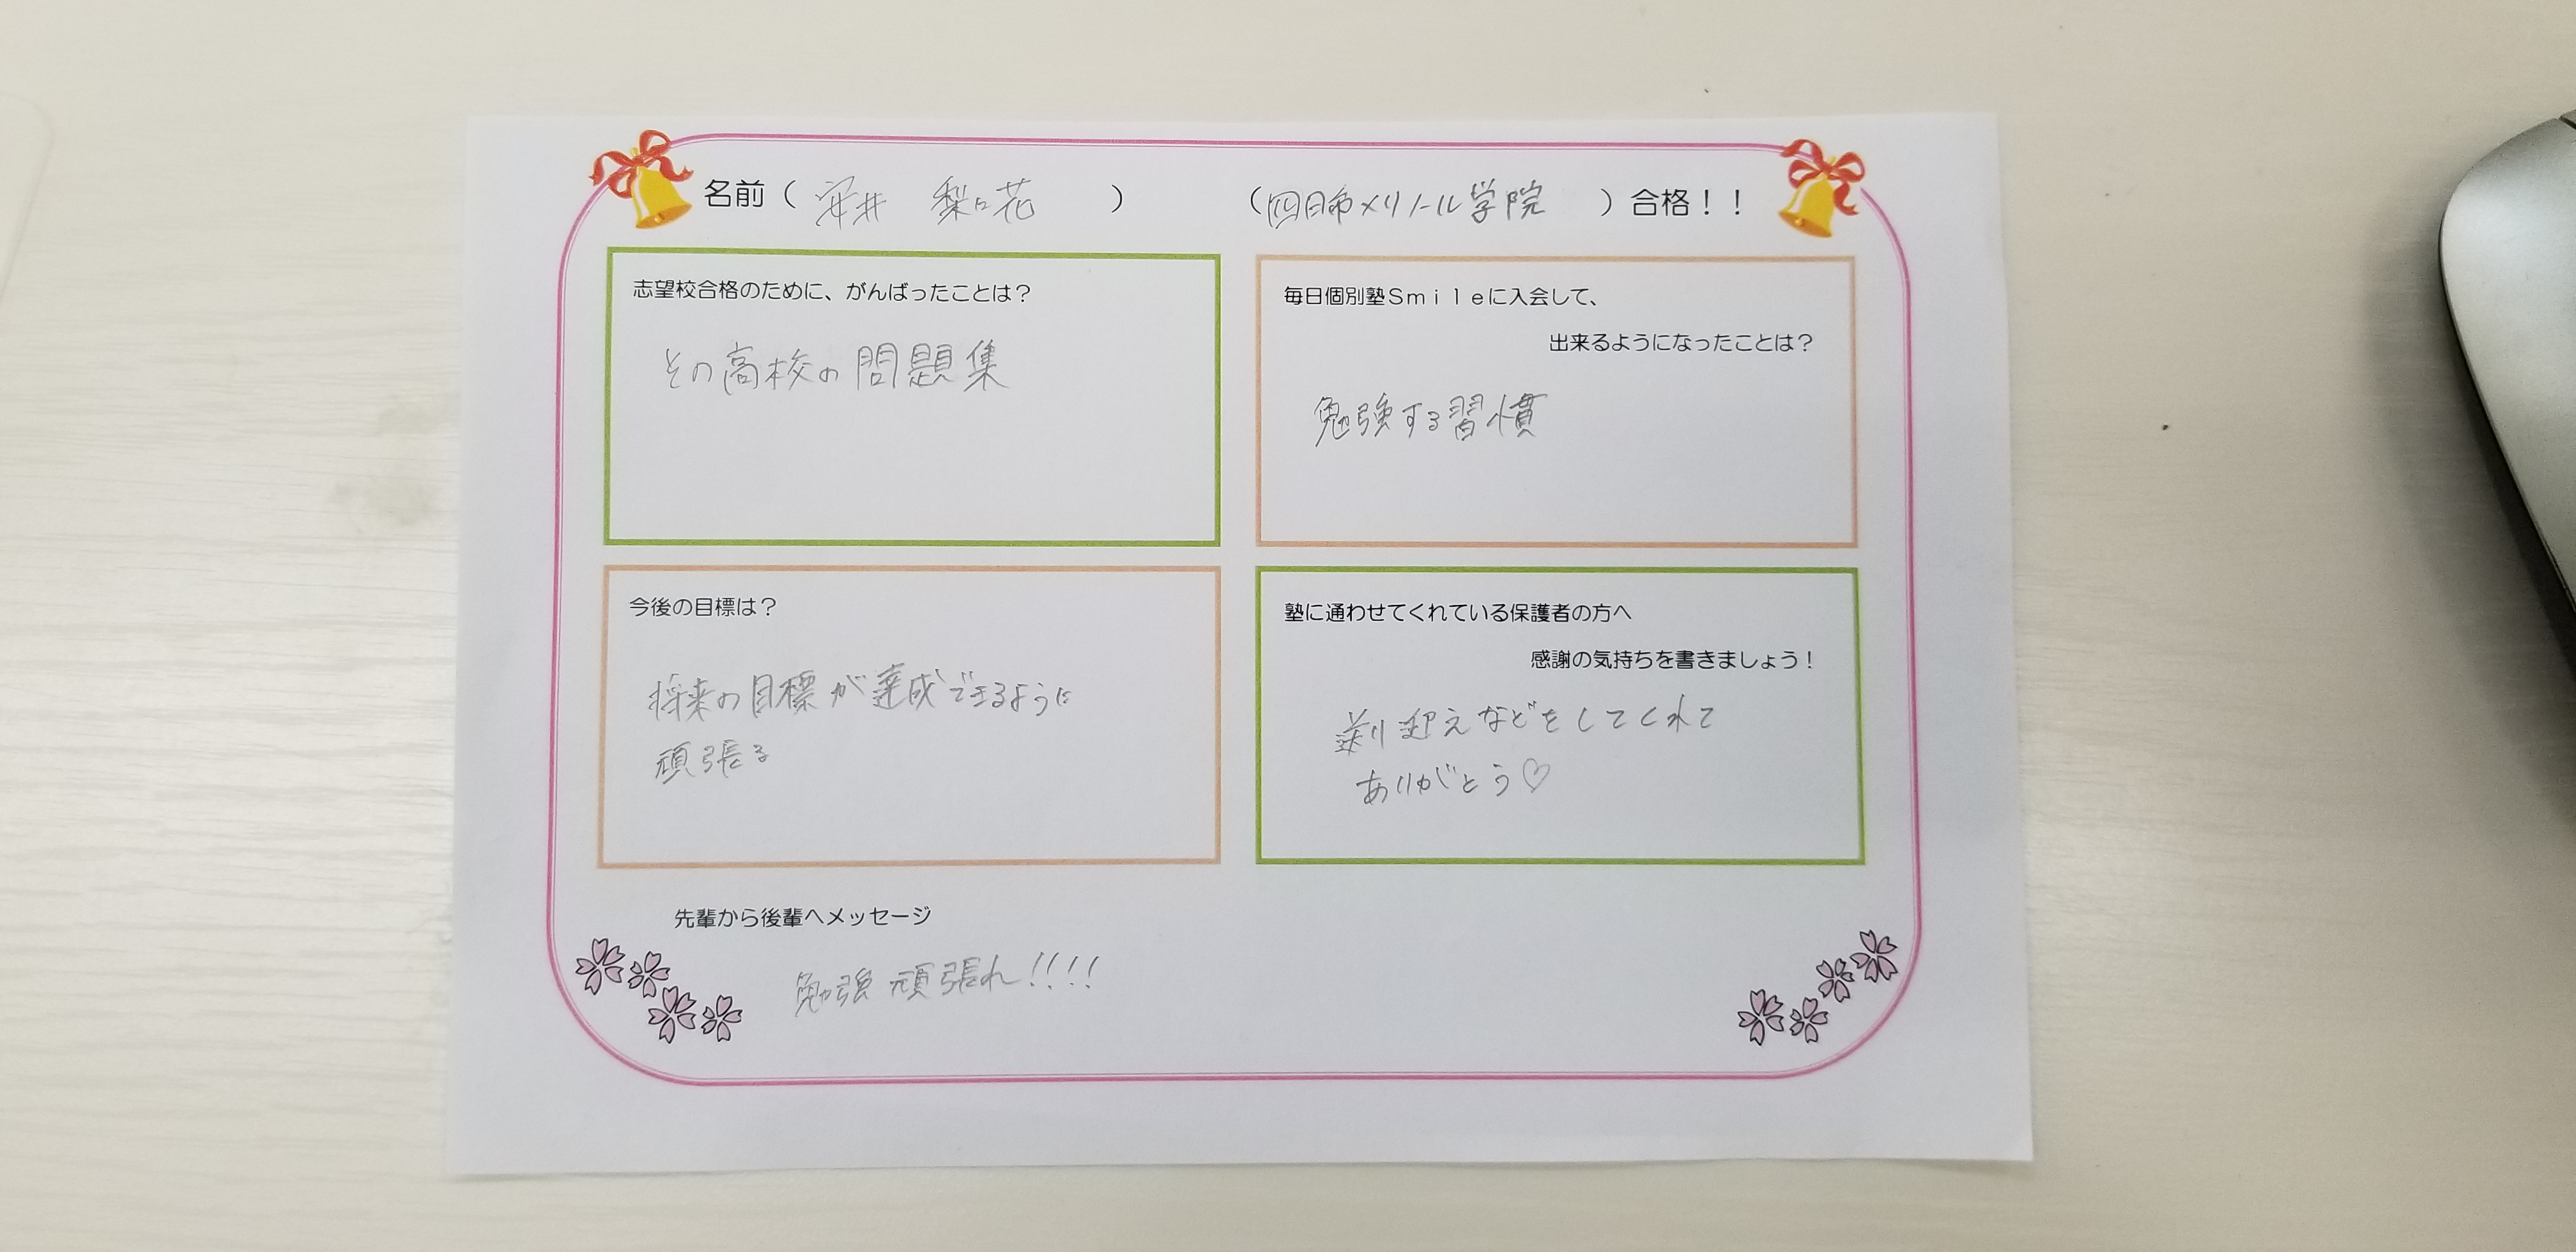 名前( )
(四日市メリノール学院)合格！！
志望校合格のために、がんばったことは？
その高校の問題集
毎日個別塾Ｓｍｉｌｅに入会して、
出来るようになったことは？
勉強する習慣
今後の目標は？
将来の目標が達成できるように
頑張る
塾に通わせてくれている保護者の方へ
感謝の気持ちを書きましょう！
送り迎えなどをしてくれて
ありがとう♡
先輩から後輩へメッセージ
勉強頑張れ!!!!